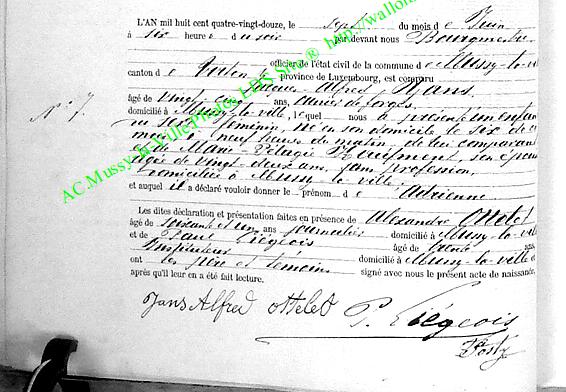 L'AN mil huit cent quatre-vingt-douze, le sept du mois de Juin
à six heures du soir par devant nous Bourgmestre
officier de l'état civil de la commune de Mussy-la-ville
canton de Virton province de Luxembourg, est comparu
Alfred Jans,
N° 7.
âgé de vingt cinq ans, ouvrier de forges,
domicilié à Mussy-la-ville, lequel nous a présenté un enfant
du sexe féminin, né en son domicile, le six de ce
mois à neuf heures du matin, de lui comparant
et de Marie son épouse
âgée de vingt-deux ans, sans profession,
domiciliée à Mussy-la-ville,
et auquel il a déclaré vouloir donner le prénom de Adrienne
Les dites déclaration et présentation faites en présence de Alexandre Ottelet
âgé de soixante et un ans journalier domicilié à Mussy-la-ville
et de Paul Liégeois âgé de trente ans,
Instituteur domicilié à Mussy-la-ville et
ont les père et témoins signé avec nous le présent acte de naissance,
après qu'il leur en a été fait lecture.
Jans Alfred Ottelet P. Liégeois
AC.Mussy-la-Ville Photos LDS Site ® http://wallo